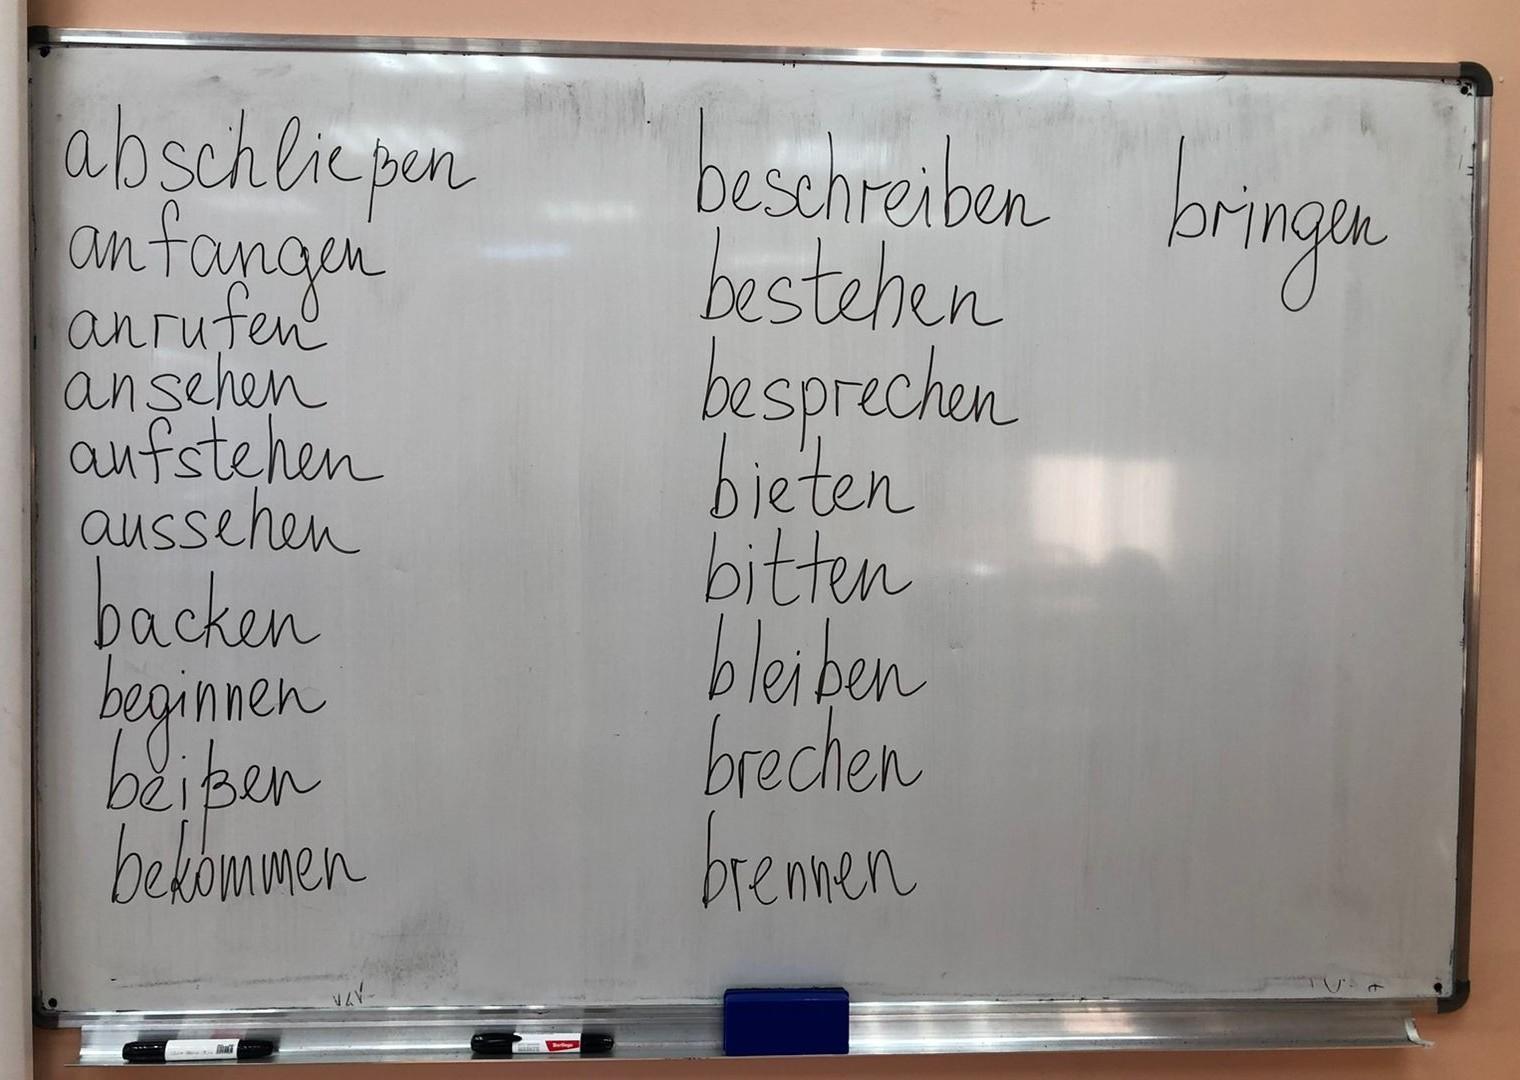 abschließen
anfangen
anrufen
ansehen
aufstehen
aussehen
backen
beginnen
beißen
bekommen
beschreiben
bestehen
besprechen
bieten
bitten
bleiben
brechen
brennen
bringen
Berlingo